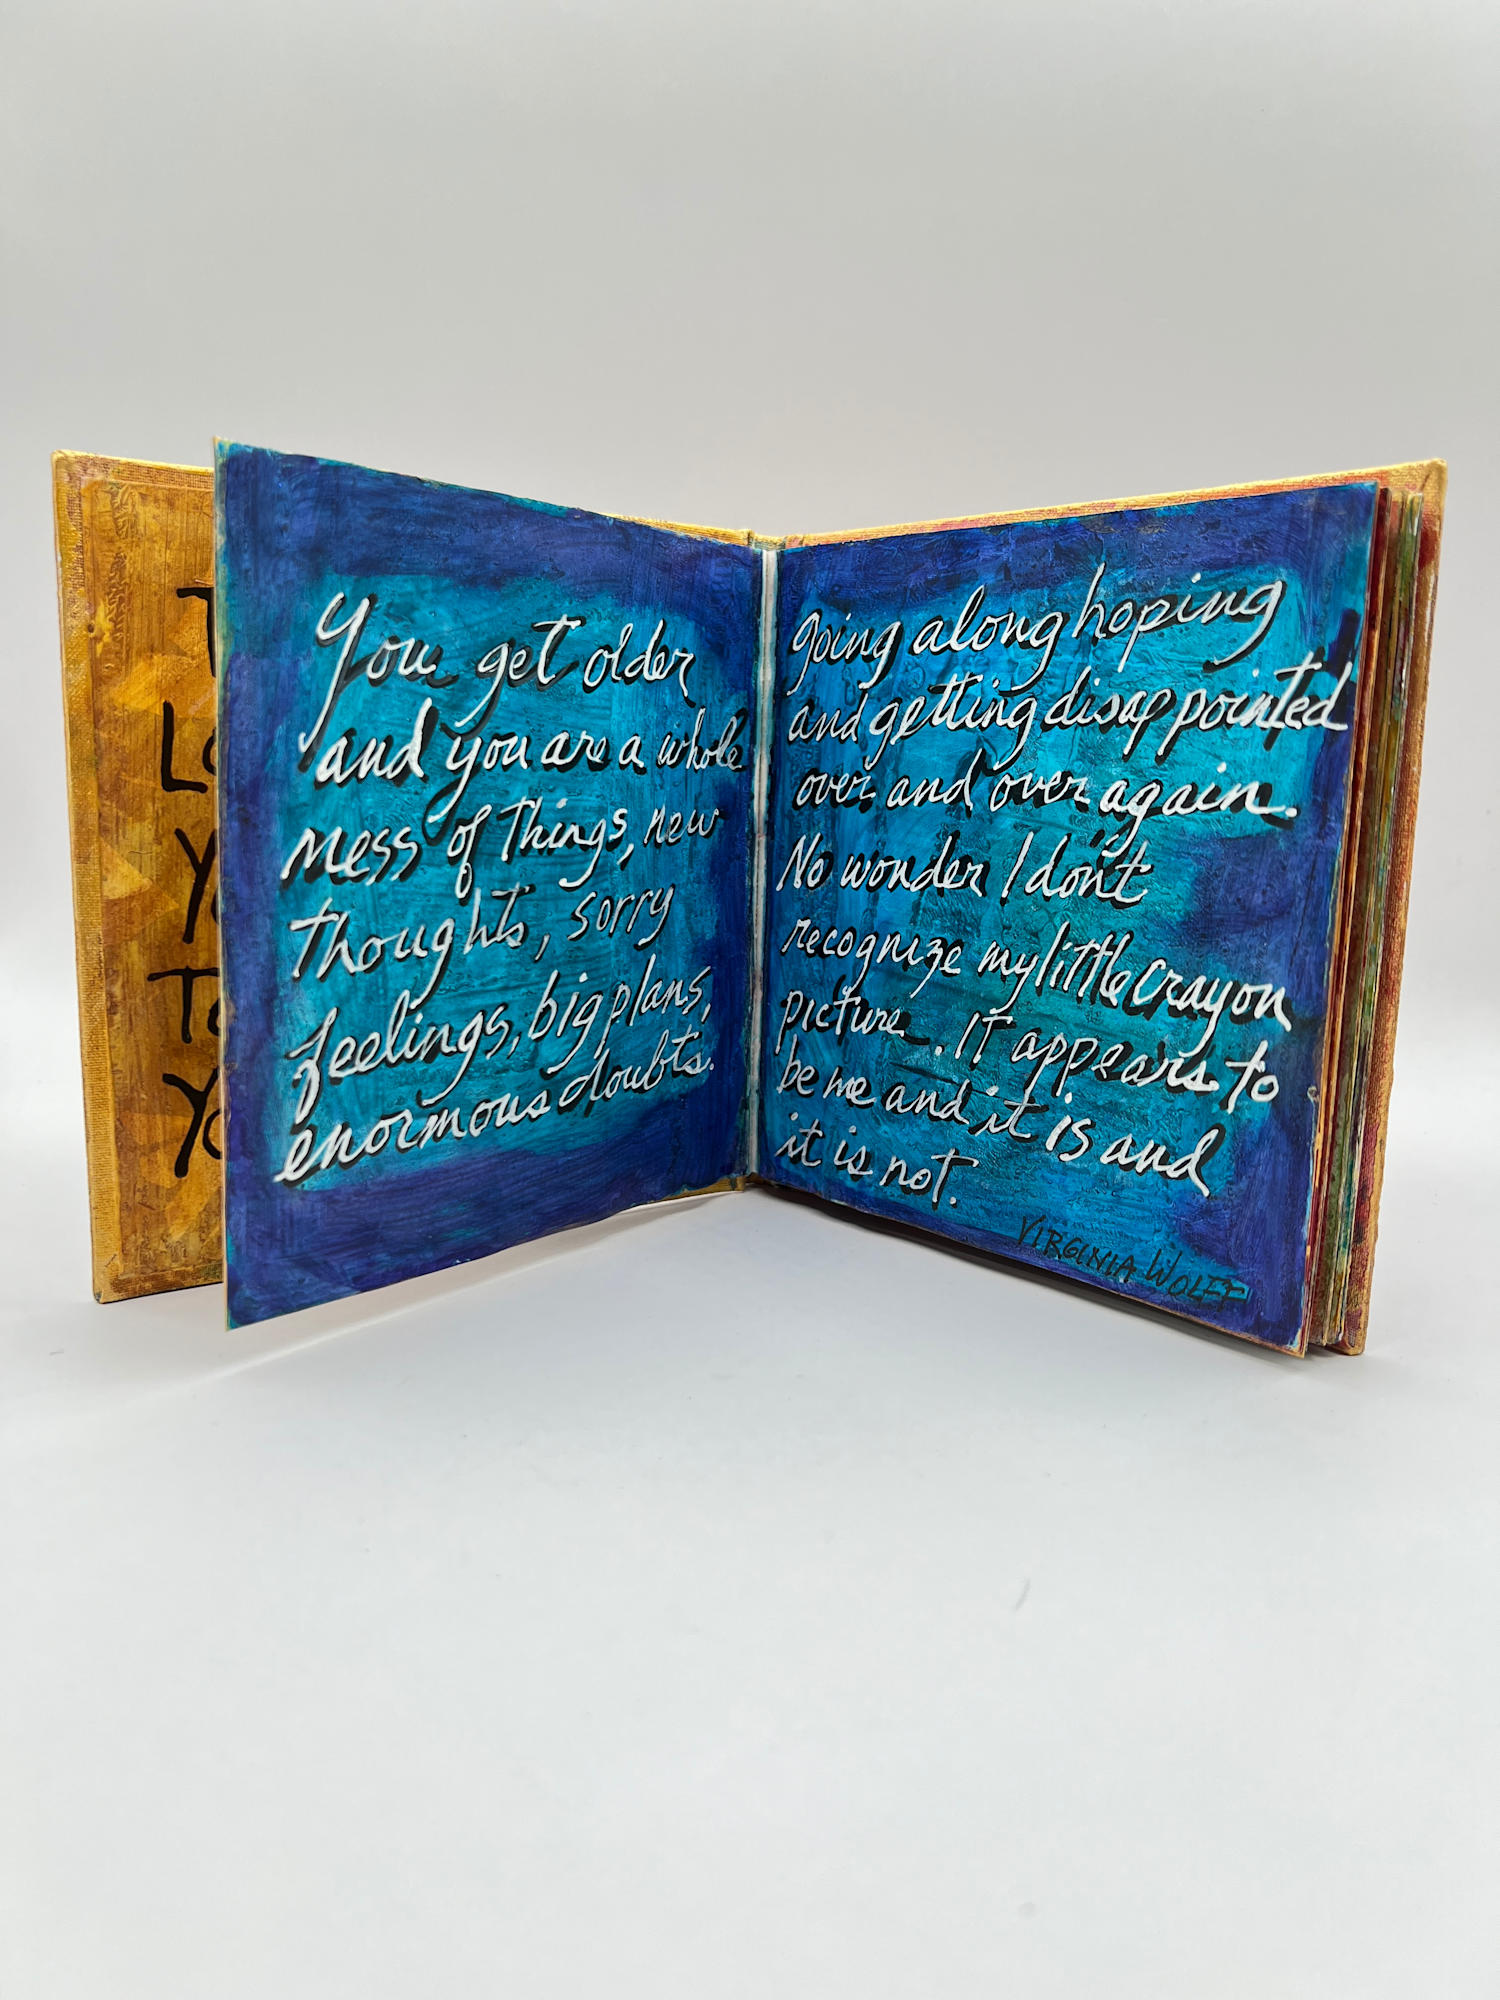 You get older
and you are a whole
mess of things, new
thoughts, sorry
feelings, big plans,
enormous doubts.
going along hoping
and getting disappointed
over and over again.
No wonder I don't
recognize my little crayon
picture. It appears to
be me and it is and
it is not.
VIRGINIA WOLFF